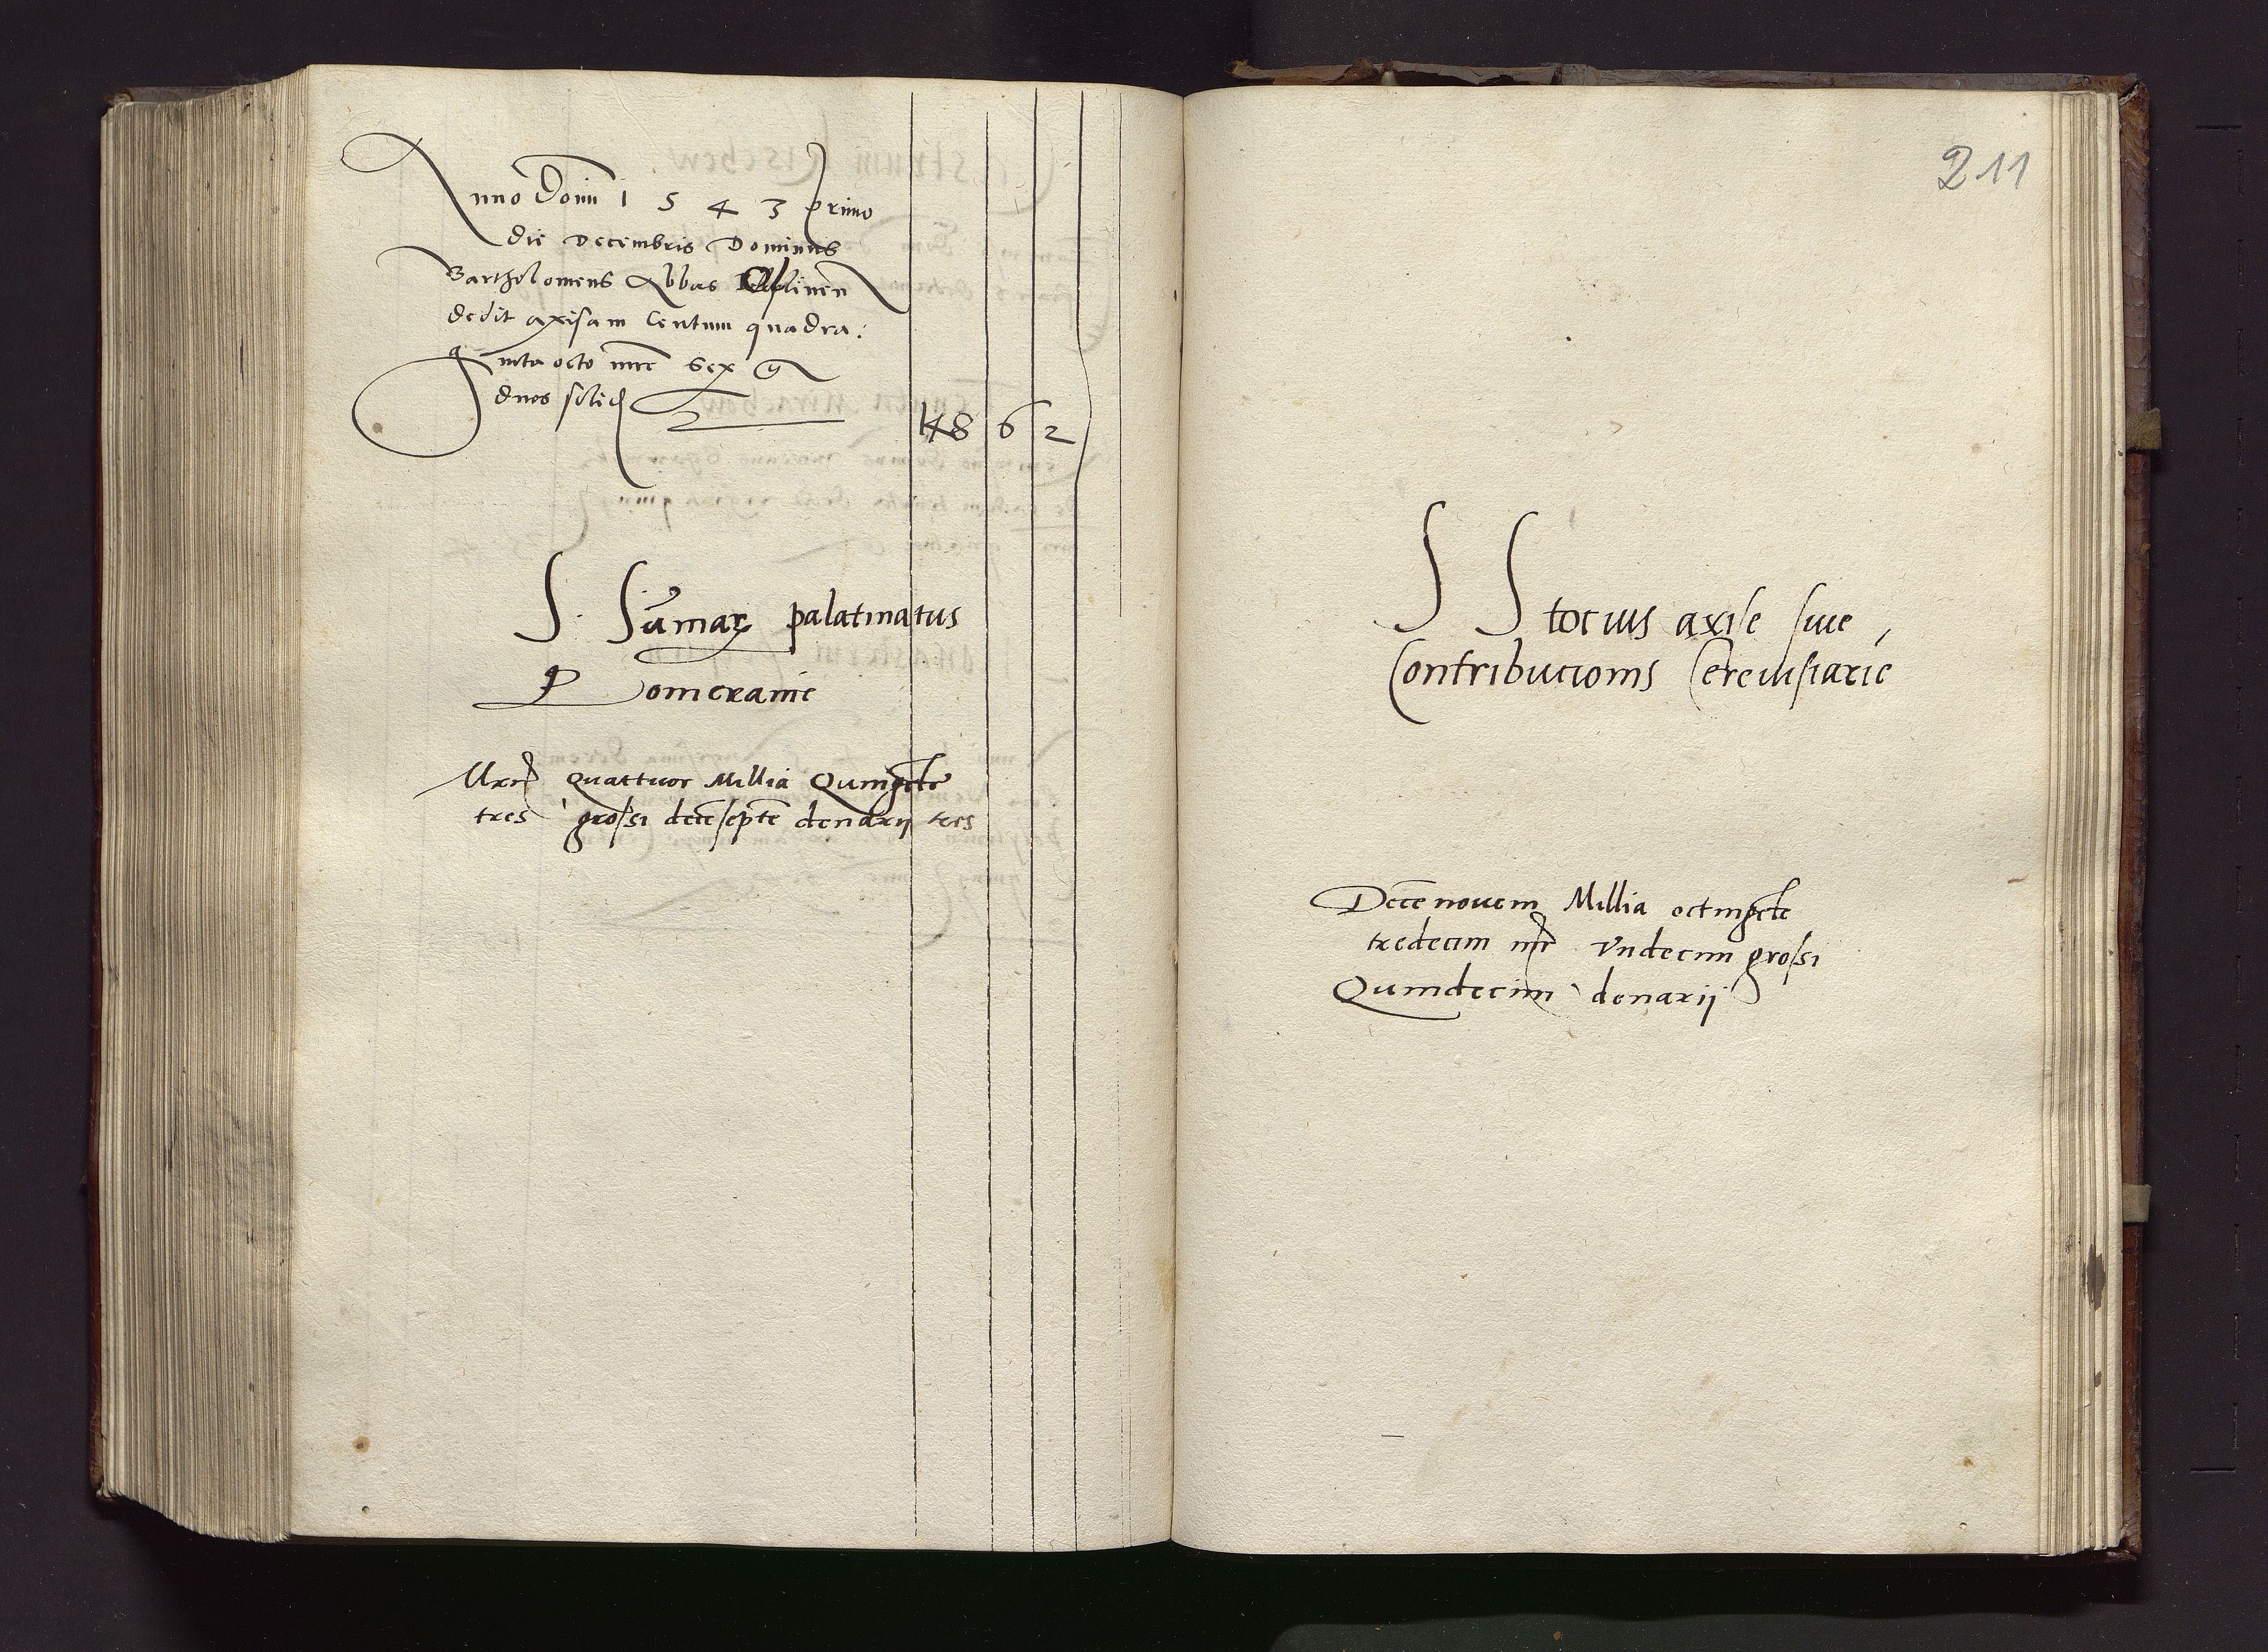 Anno Domi 1 5 4 3 primo
die Decembris Dominus
Bartholomeus Abbas Polplinen
dedit axisam Centum quadra:
ginta octo mrc sex g
duos solid
148 6 2
S. Sūmar palatinatus
Pomeranie
Mrc quattuor Millia Quingēte
tres grossi decēseptē denarij tres
211
S S tocius axise siue
Contribucionis Cereuisiarie
Decē nouem Millia octingēte
tredecim mr vndecim grossi
Quindecim denarij